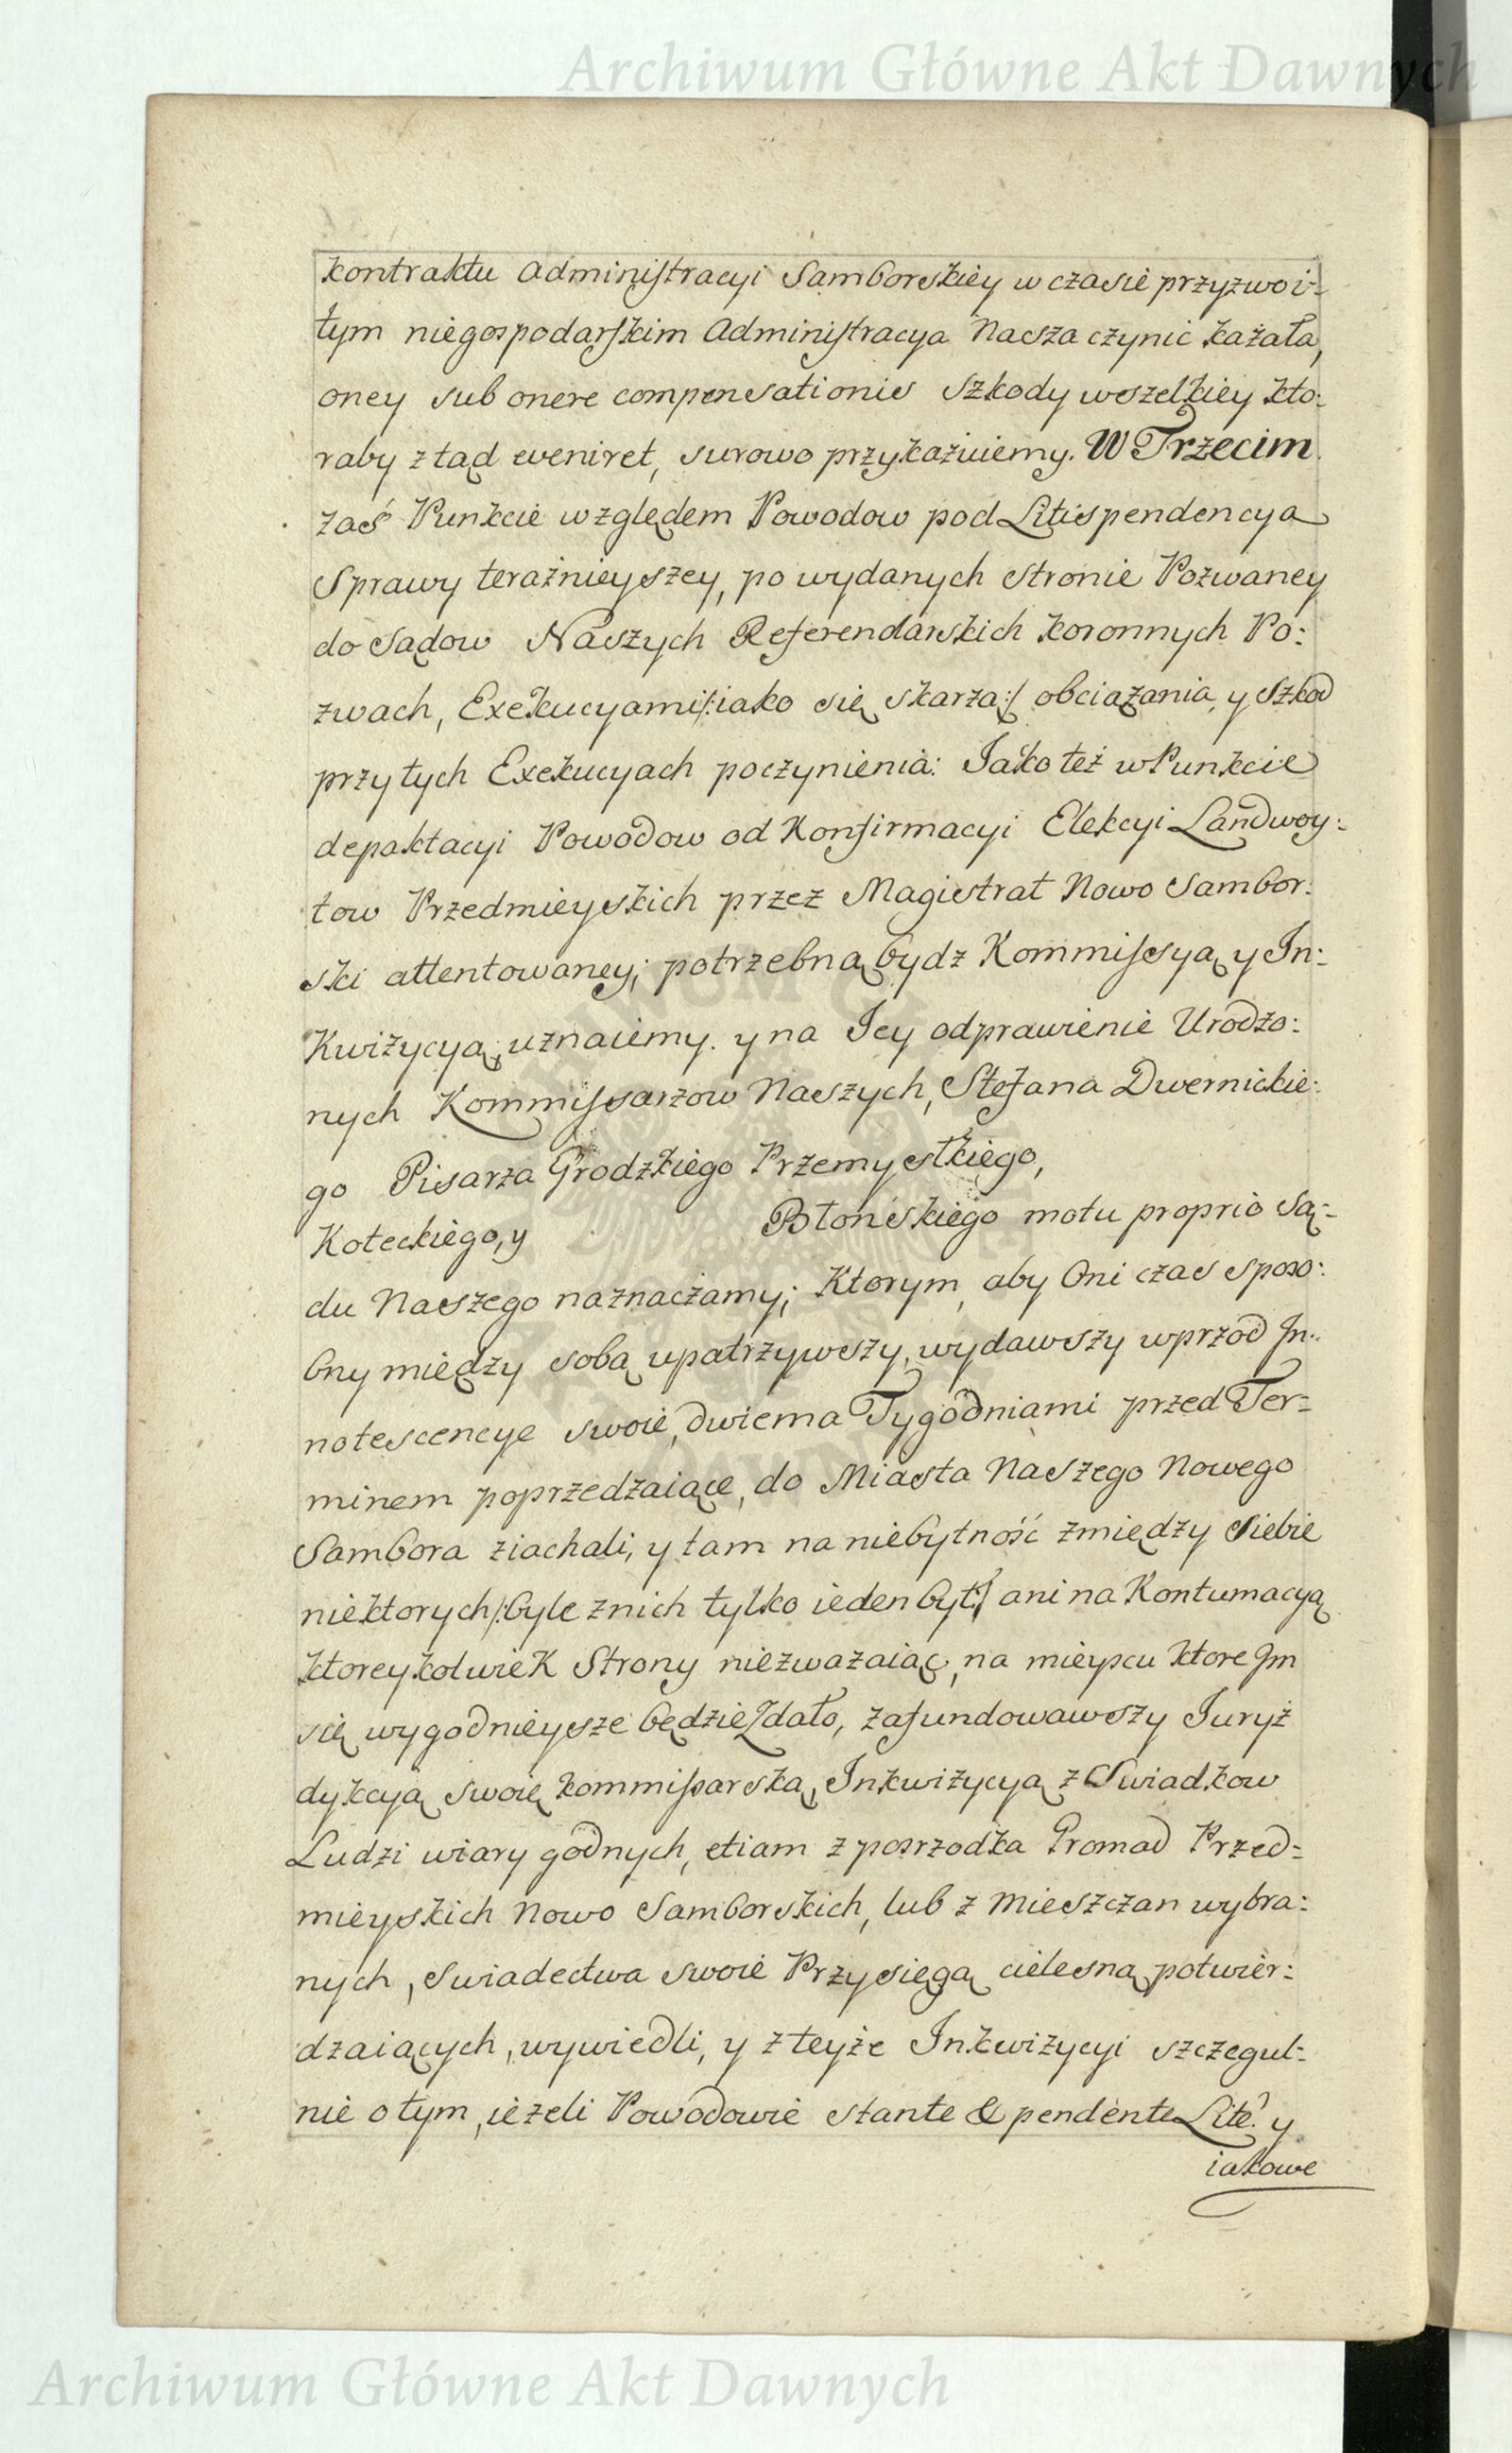 Archiwum Główne Akt Dawnych
kontraktu Administracyi Samborskiey w czasie przyzwoi-
tym niegospodarskim Administracya Nasza czynić kazała,
oney sub onere compensationis szkody wszelkiey kto:
raby ztąd eveniret, surowo przykazuiemy. W Trzecim
zaś Punkcie względem Powodow pod Litispendencya
Sprawy teraźnieyszey, po wydanych stronie Pozwaney
do Sądow Naszych Referendarskich Koronnych Po:
zwach, Exekucyami/:iako się skarzą:/ obciążania, y Szkod
przy tych Exekucyach poczynienia: Jako też w Punkcie
depaktacyi Powodow od Konfirmacyi Elekcyi Landwoy:
tow Przedmieyskich przez Magistrat Nowo Sambor:
ski attentowaney; potrzebną bydz Kommissyą y In:
Kwizycyą, uznaiemy. y na Jey odprawienie Urodzo:
nych Kommissarzow Naszych, Stefana Dwernickie:
go Pisarza Grodzkiego Przemyslkiego,
Koteckiego, y Błońskiego motu proprio Są:
du Naszego naznaczamy; Ktorym, aby Oni czas sposo:
bny między sobą upatrzywszy, wydawszy wprzod In:
notescencye swoie, dwiema Tygodniami przed Ter:
minem poprzedzaiące, do Miasta Naszego Nowego
Sambora ziachali, y tam na niebytność zmiędzy siebie
niektorych/:byle znich tylko ieden był:/ ani na Kontumacyą
ktoreykolwiek Strony niezwazaiąc, na mieyscu ktore Im
się wygodnieysze będzie zdało, zafundowawszy Juryz
dykcyą swoię kommissarską, Inkwizycyą z Swiadkow
Ludzi wiary godnych, etiam z posrzodka Gromad Przed:
mieyskich Nowo Samborskich, lub z Mieszczan wybra:
nych, swiadectwa swoie Przysięgą cielesną potwier:
dzaiących, wywiedli, y z teyże Inkwizycyi szczegul:
nie o tym, iezeli Powodowie stante & pendente Lite? y
iakowe
Archiwum Główne Akt Dawnych